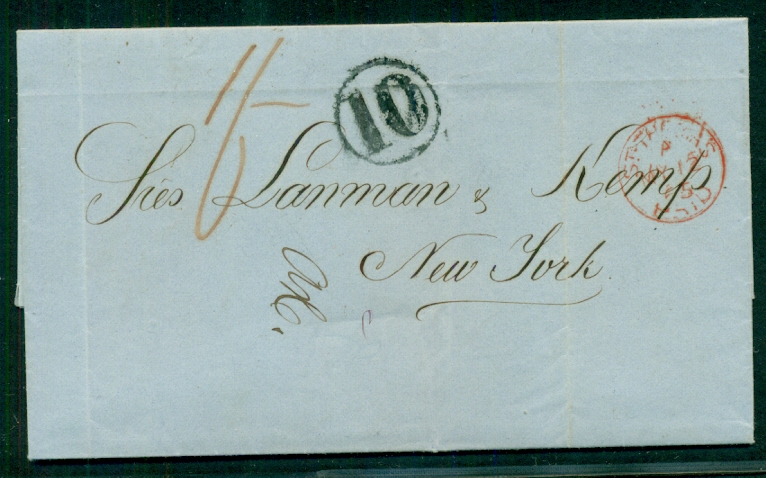 10
ST THOMAS
Sres Lanman & Kemp
New York